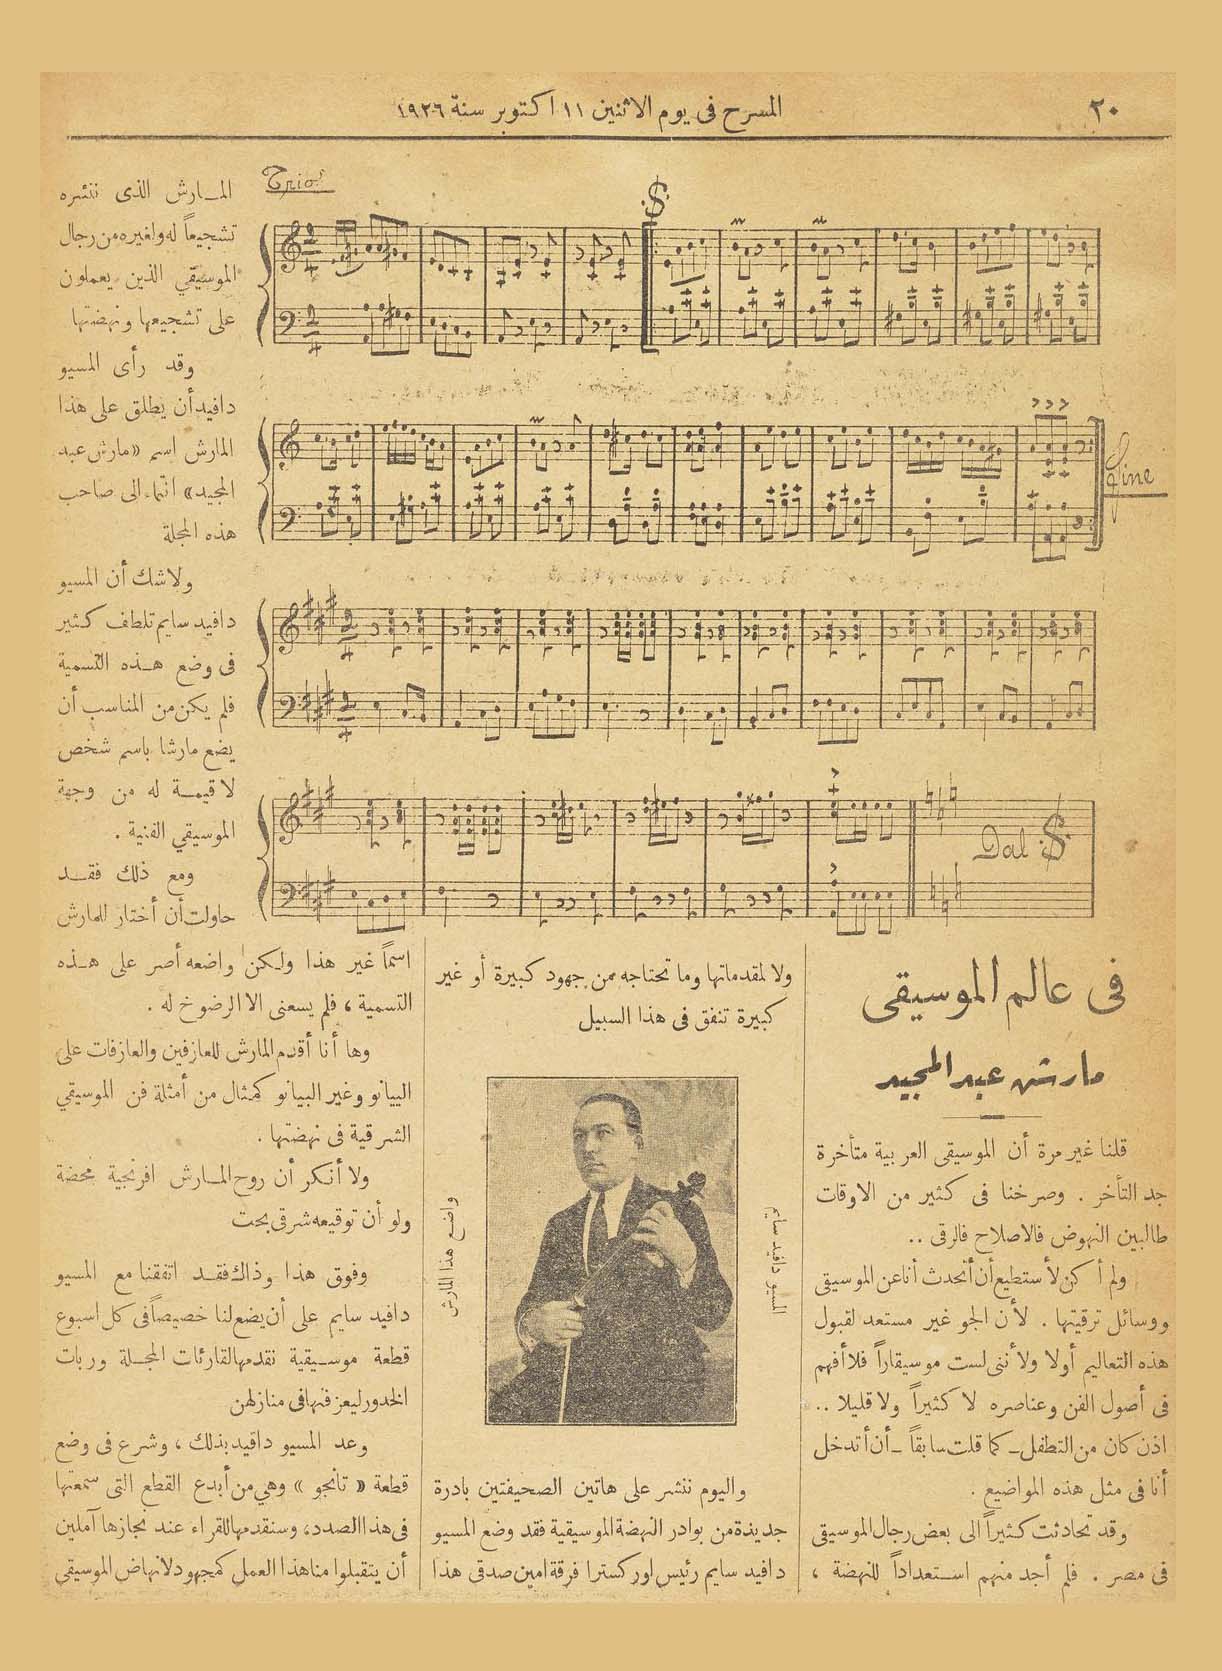 ٢٠
المسرح فى يوم الاثنين ١١ اكتوبر سنة ١٩٢٦
Trio
Fine
Dal
فى عالم الموسيقى
مارش عبد المجيد
قلنا غير مرة أن الموسيقى العربية متأخرة
جد التأخر . وصرخنا فى كثير من الاوقات
طالبين النهوض فالاصلاح فالرقى ..
ولم أكن لأستطيع أن أتحدث أنا عن الموسيقى
ووسائل ترقيتها . لأن الجو غير مستعد لقبول
هذه التعاليم أولا ولأننى لست موسيقاراً فلا أفهم
فى أصول الفن وعناصره لا كثيراً ولا قليلا ..
اذن كان من التطفل ـ كما قلت سابقاً ـ أن أتدخل
أنا فى مثل هذه المواضيع .
وقد تحادثت كثيراً الى بعض رجال الموسيقى
فى مصر . فلم أجد منهم استعداداً للنهضة ،
ولا لمقدماتها وما تحتاجه من جهود كبيرة أو غير
كبيرة تنفق فى هذا السبيل
المسيو دافيد سايم
واضع هذا المارش
واليوم ننشر على هاتين الصحيفتين بادرة
جديدة من بوادر النهضة الموسيقية فقد وضع المسيو
دافيد سايم رئيس اوركسترا فرقة امين صدقى هذا
المـارش الذى ننشره
تشجيعاً له ولغيره من رجال
الموسيقي الذين يعملون
على تشجيعها ونهضتها
وقد رأى المسيو
دافيد أن يطلق على هذا
المارش اسم «مارش عبد
المجيد» انتماء الى صاحب
هذه المجلة
ولا شك أن المسيو
دافيد سايم تلطف كثير
فى وضع هـذه التسمية
فلم يكن من المناسب أن
يضع مارشا باسم شخص
لا قيمـة له من وجهة
الموسيقي الفنية .
ومع ذلك فقـد
حاولت أن أختار للمارش
اسماً غير هذا ولكن واضعه أصر على هـذه
التسمية ، فلم يسعنى الا الرضوخ له .
وها أنا أقدم المارش للعازفين والعازفات على
البيانو وغير البيانو كمثال من أمثلة فن الموسيقي
الشرقية فى نهضتها .
ولا أنكر أن روح المـارش افرنجية محضة
ولو أن توقيعه شرقى بحت
وفوق هذا وذاك فقـد اتفقنا مع المسيو
دافيد سايم على أن يضع لنا خصيصاً فى كل اسبوع
قطعة موسـيقية نقدمها لقارئات المجـلة وربات
الخدور ليعزفنها فى منازلهن
وعد المسيو دافيد بذلك ، وشرع فى وضع
قطعة « تانجو » وهي من أبدع القطع التى سمعتها
فى هذا الصدد، وسنقدمها للقراء عند نجازها آملين
أن يتقبلوا منا هذا العمل كمجهود لانهاض الموسيقي